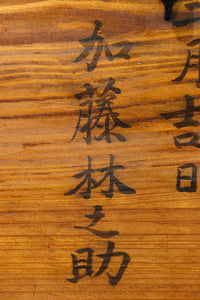 月吉日
加藤林之助